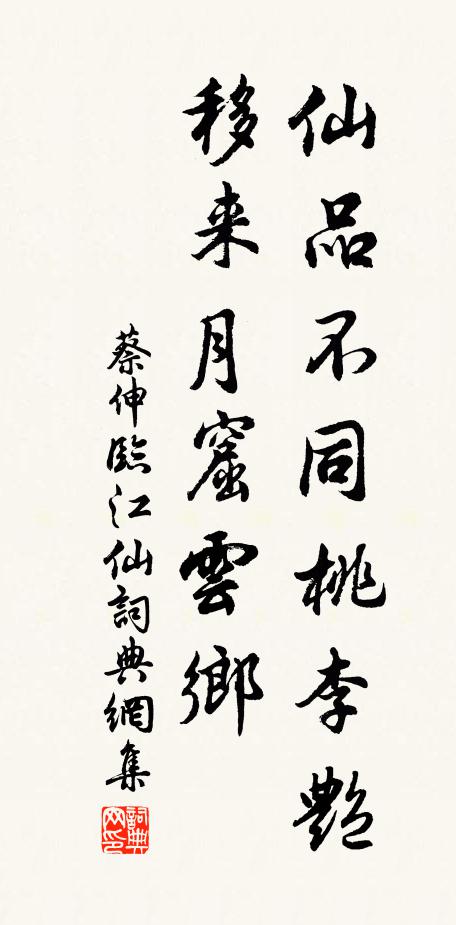 仙品不同桃李艷
移来月窟雲鄉
蔡伸臨江仙詞典網集
詞典网印